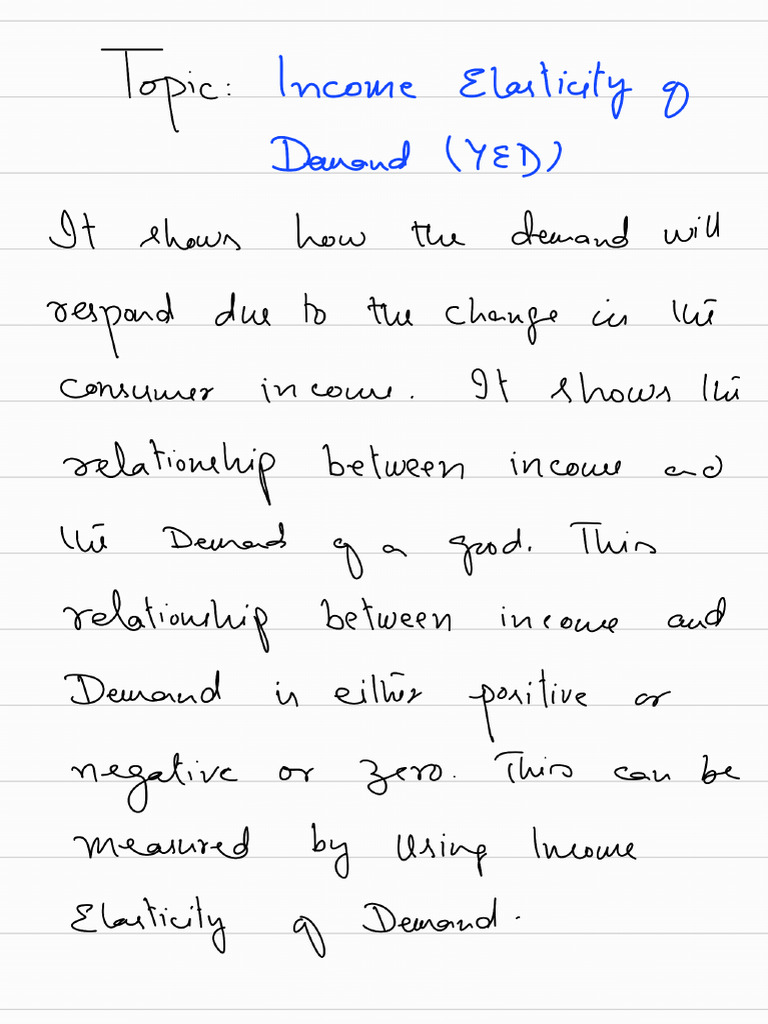 Topic: Income Elasticity of
Demand (YED)
It shows how the demand will
respond due to the change in the
consumer income. It shows the
relationship between income and
the Demand of a good. This
relationship between income and
Demand is either positive or
negative or zero. This can be
measured by using Income
Elasticity of Demand.